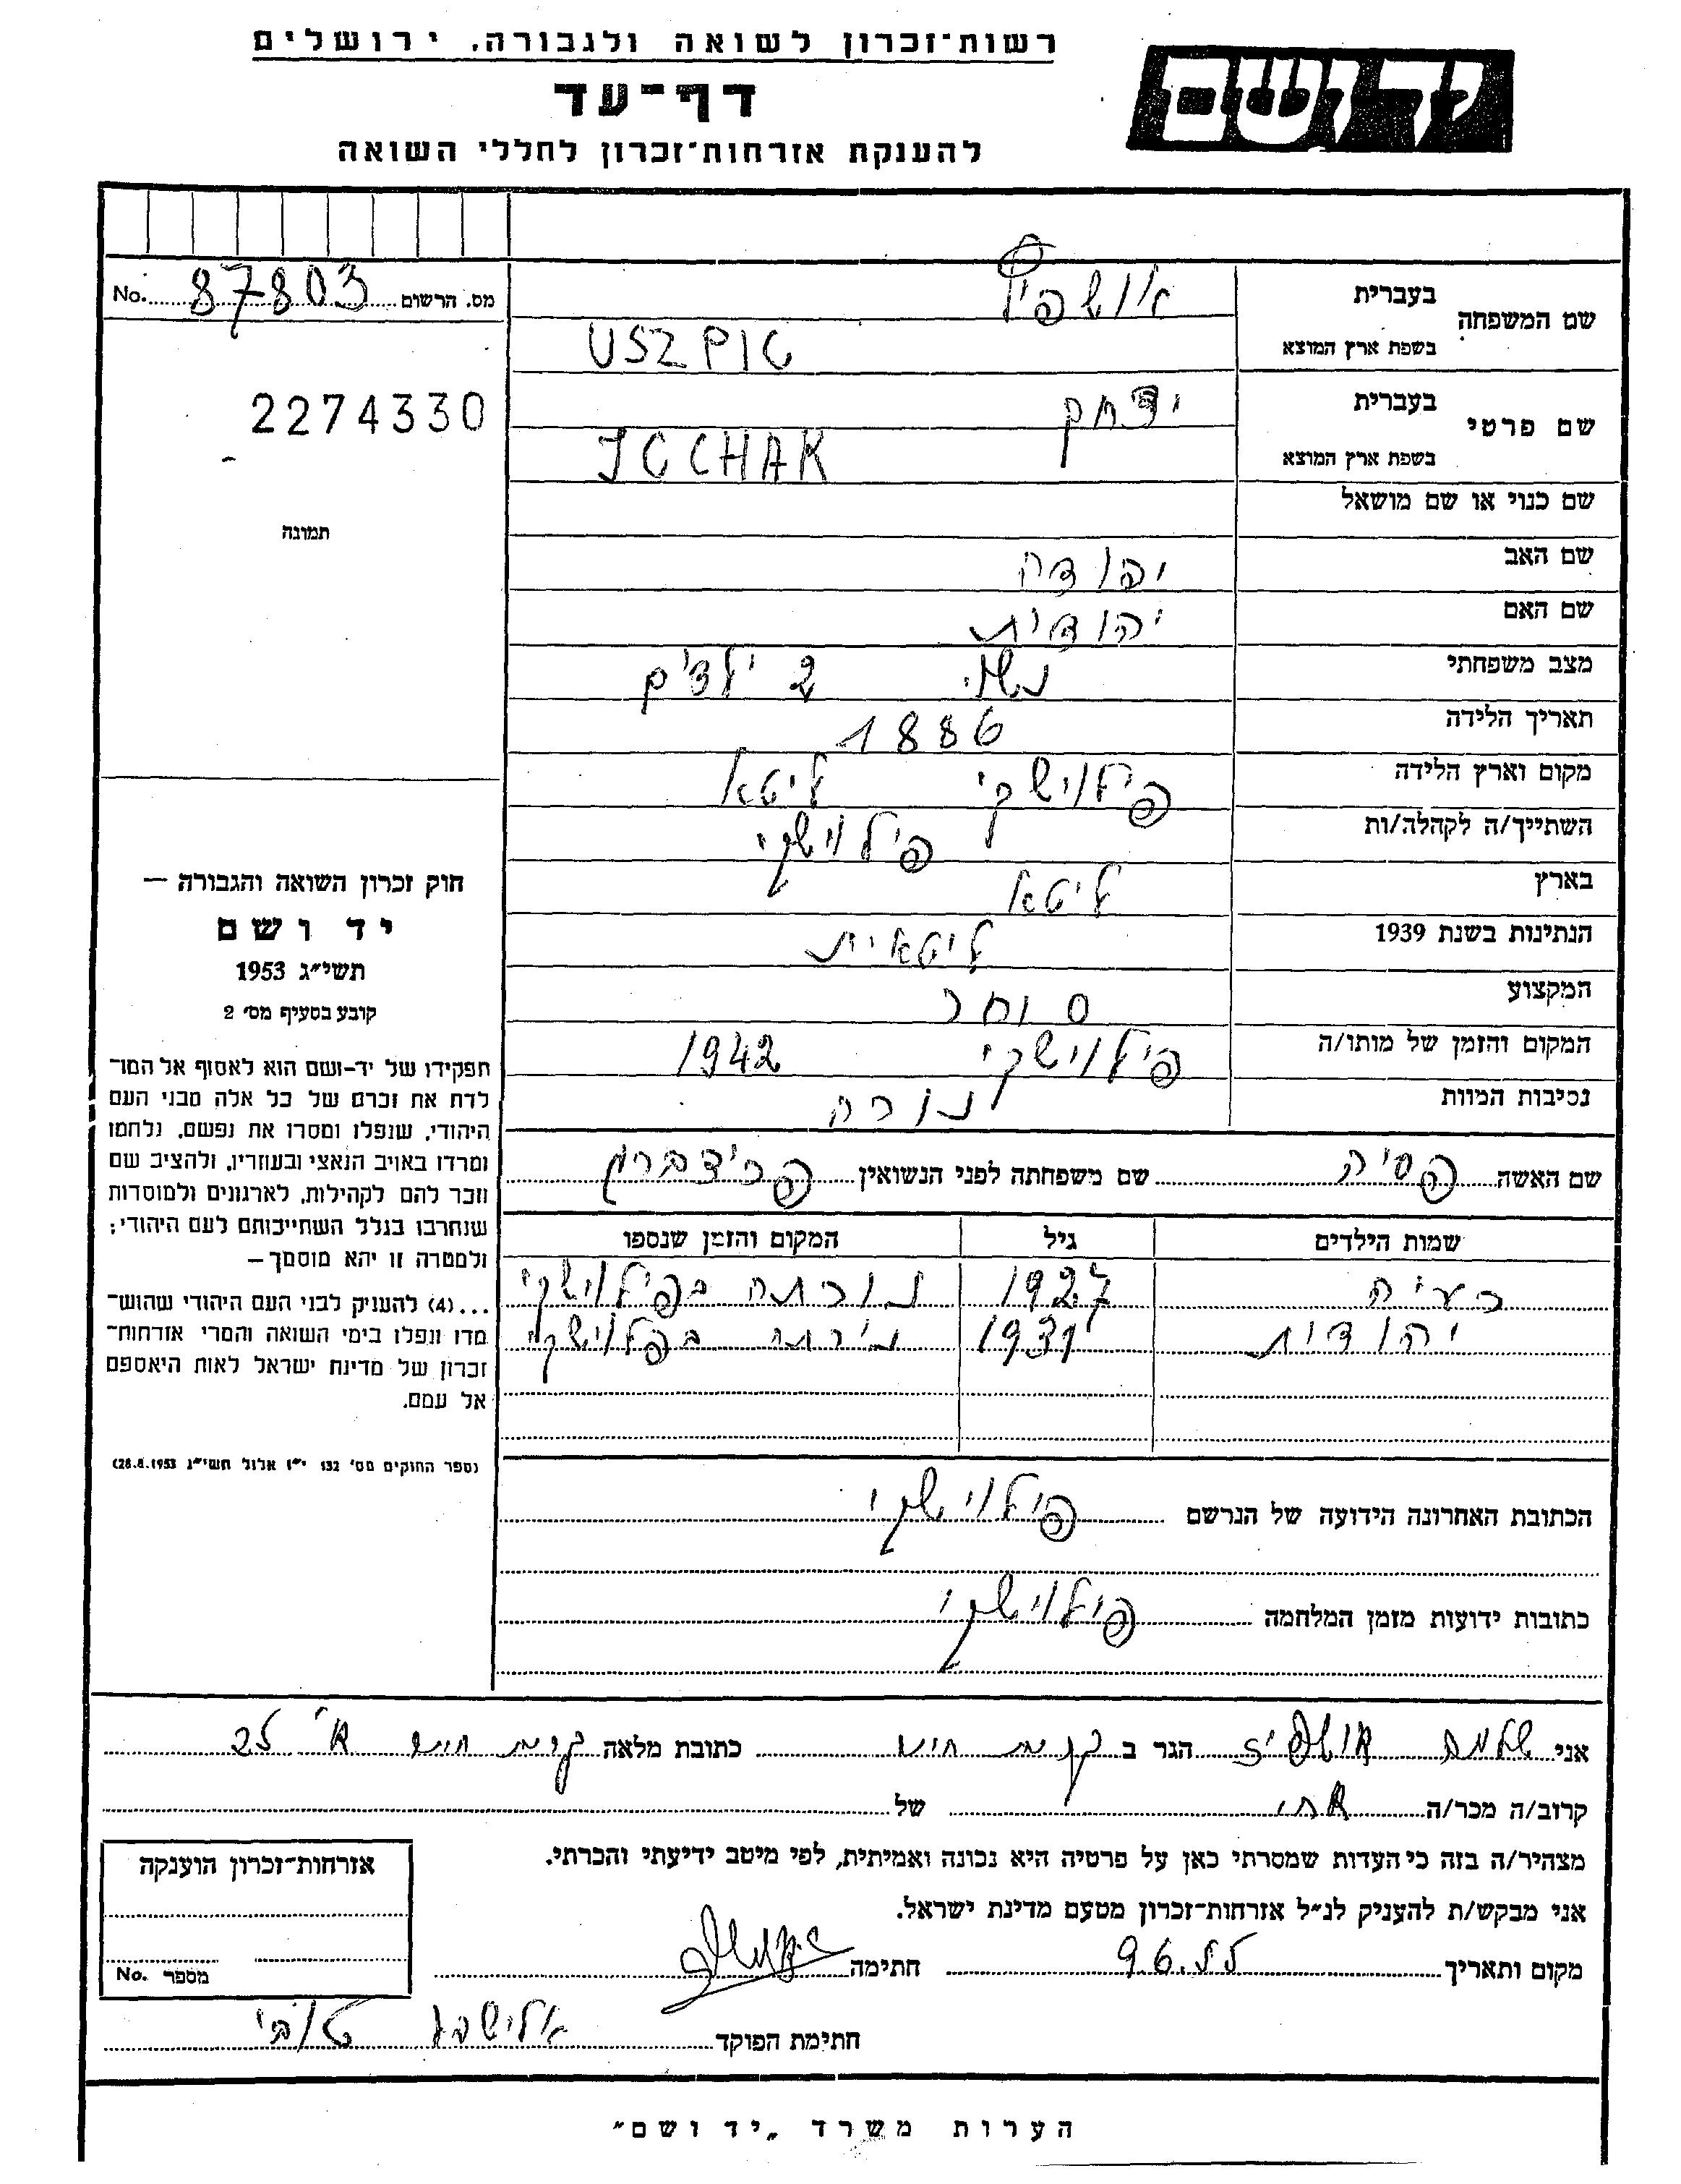 רשות־זכרון לשואה ולגבורה, ירושלים
יד ושם
דף־עד
להענקת אזרחות־זכרון לחללי השואה
מס. הרשום 87803 No.
2274330
תמונה
שם המשפחה
בעברית אושפיץ
בשפת ארץ המוצא USZPIC
שם פרטי
בעברית יצחק
בשפת ארץ המוצא ICCHAK
שם כנוי או שם מושאל
שם האב יהודה
שם האם יהודית
מצב משפחתי נשוי 2 ילדים
תאריך הלידה 1886
מקום וארץ הלידה פילוישקי ליטא
השתייך/ה לקהלה/ות פילוישקי
בארץ ליטא
הנתינות בשנת 1939 ליטאית
המקצוע סוחר
המקום והזמן של מותו/ה פילוישקי 1942
נסיבות המוות נורה
שם האשה פסיה שם משפחתה לפני הנשואין
שמות הילדים גיל המקום והזמן שנספו
1927 נורתה בפילוישקי
יהודית 1931 נורתה בפלוישקי
הכתובת האחרונה הידועה של הנרשם פילוישקי
כתובות ידועות מזמן המלחמה פילוישקי
חוק זכרון השואה והגבורה —
יד ושם
תשי״ג 1953
קובע בסעיף מס׳ 2
תפקידו של יד־ושם הוא לאסוף אל המו־
לדת את זכרם של כל אלה מבני העם
היהודי, שנפלו ומסרו את נפשם, נלחמו
ומרדו באויב הנאצי ובעוזריו, ולהציב שם
וזכר להם לקהילות, לארגונים ולמוסדות
שנחרבו בגלל השתייכותם לעם היהודי;
ולמטרה זו יהא מוסמך—
...(4) להעניק לבני העם היהודי שהוש־
מדו ונפלו בימי השואה והמרי אזרחות־
זכרון של מדינת ישראל לאות היאספם
אל עמם.
(ספר החוקים מס׳ 132 י״ז אלול תשי״ג 28.8.1953)
אני שלמה אושפיץ הגר ב קרית חיים כתובת מלאה קרית חיים א׳ 25
קרוב/ה מכר/ה אחי של
מצהיר/ה בזה כי העדות שמסרתי כאן על פרטיה היא נכונה ואמיתית, לפי מיטב ידיעתי והכרתי.
אני מבקש/ת להעניק לנ״ל אזרחות־זכרון מטעם מדינת ישראל.
מקום ותאריך 9.6.55 חתימה
אזרחות־זכרון הוענקה
מספר No.
חתימת הפוקד אלישבע טובי
הערות משרד „יד ושם״